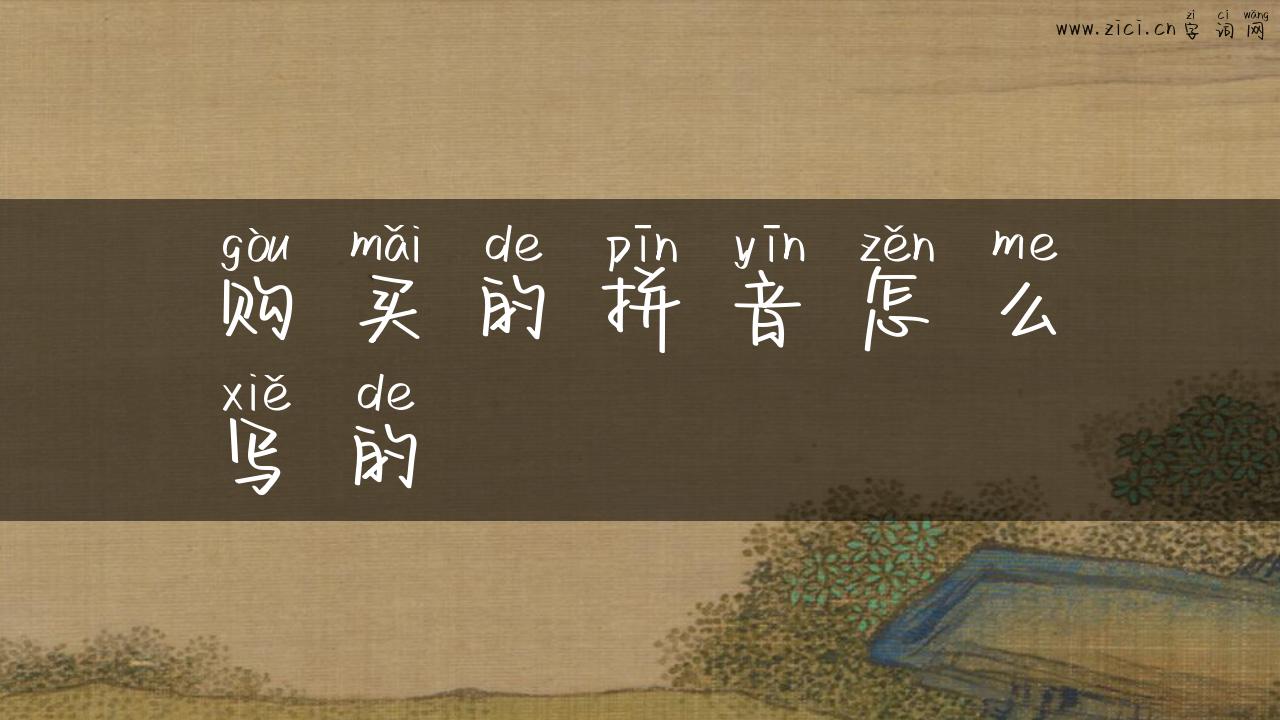 zì cí wǎng
www.zici.cn 字 词 网
gòu mǎi de pīn yīn zěn me
购 买 的 拼 音 怎 么
xiě de
写 的